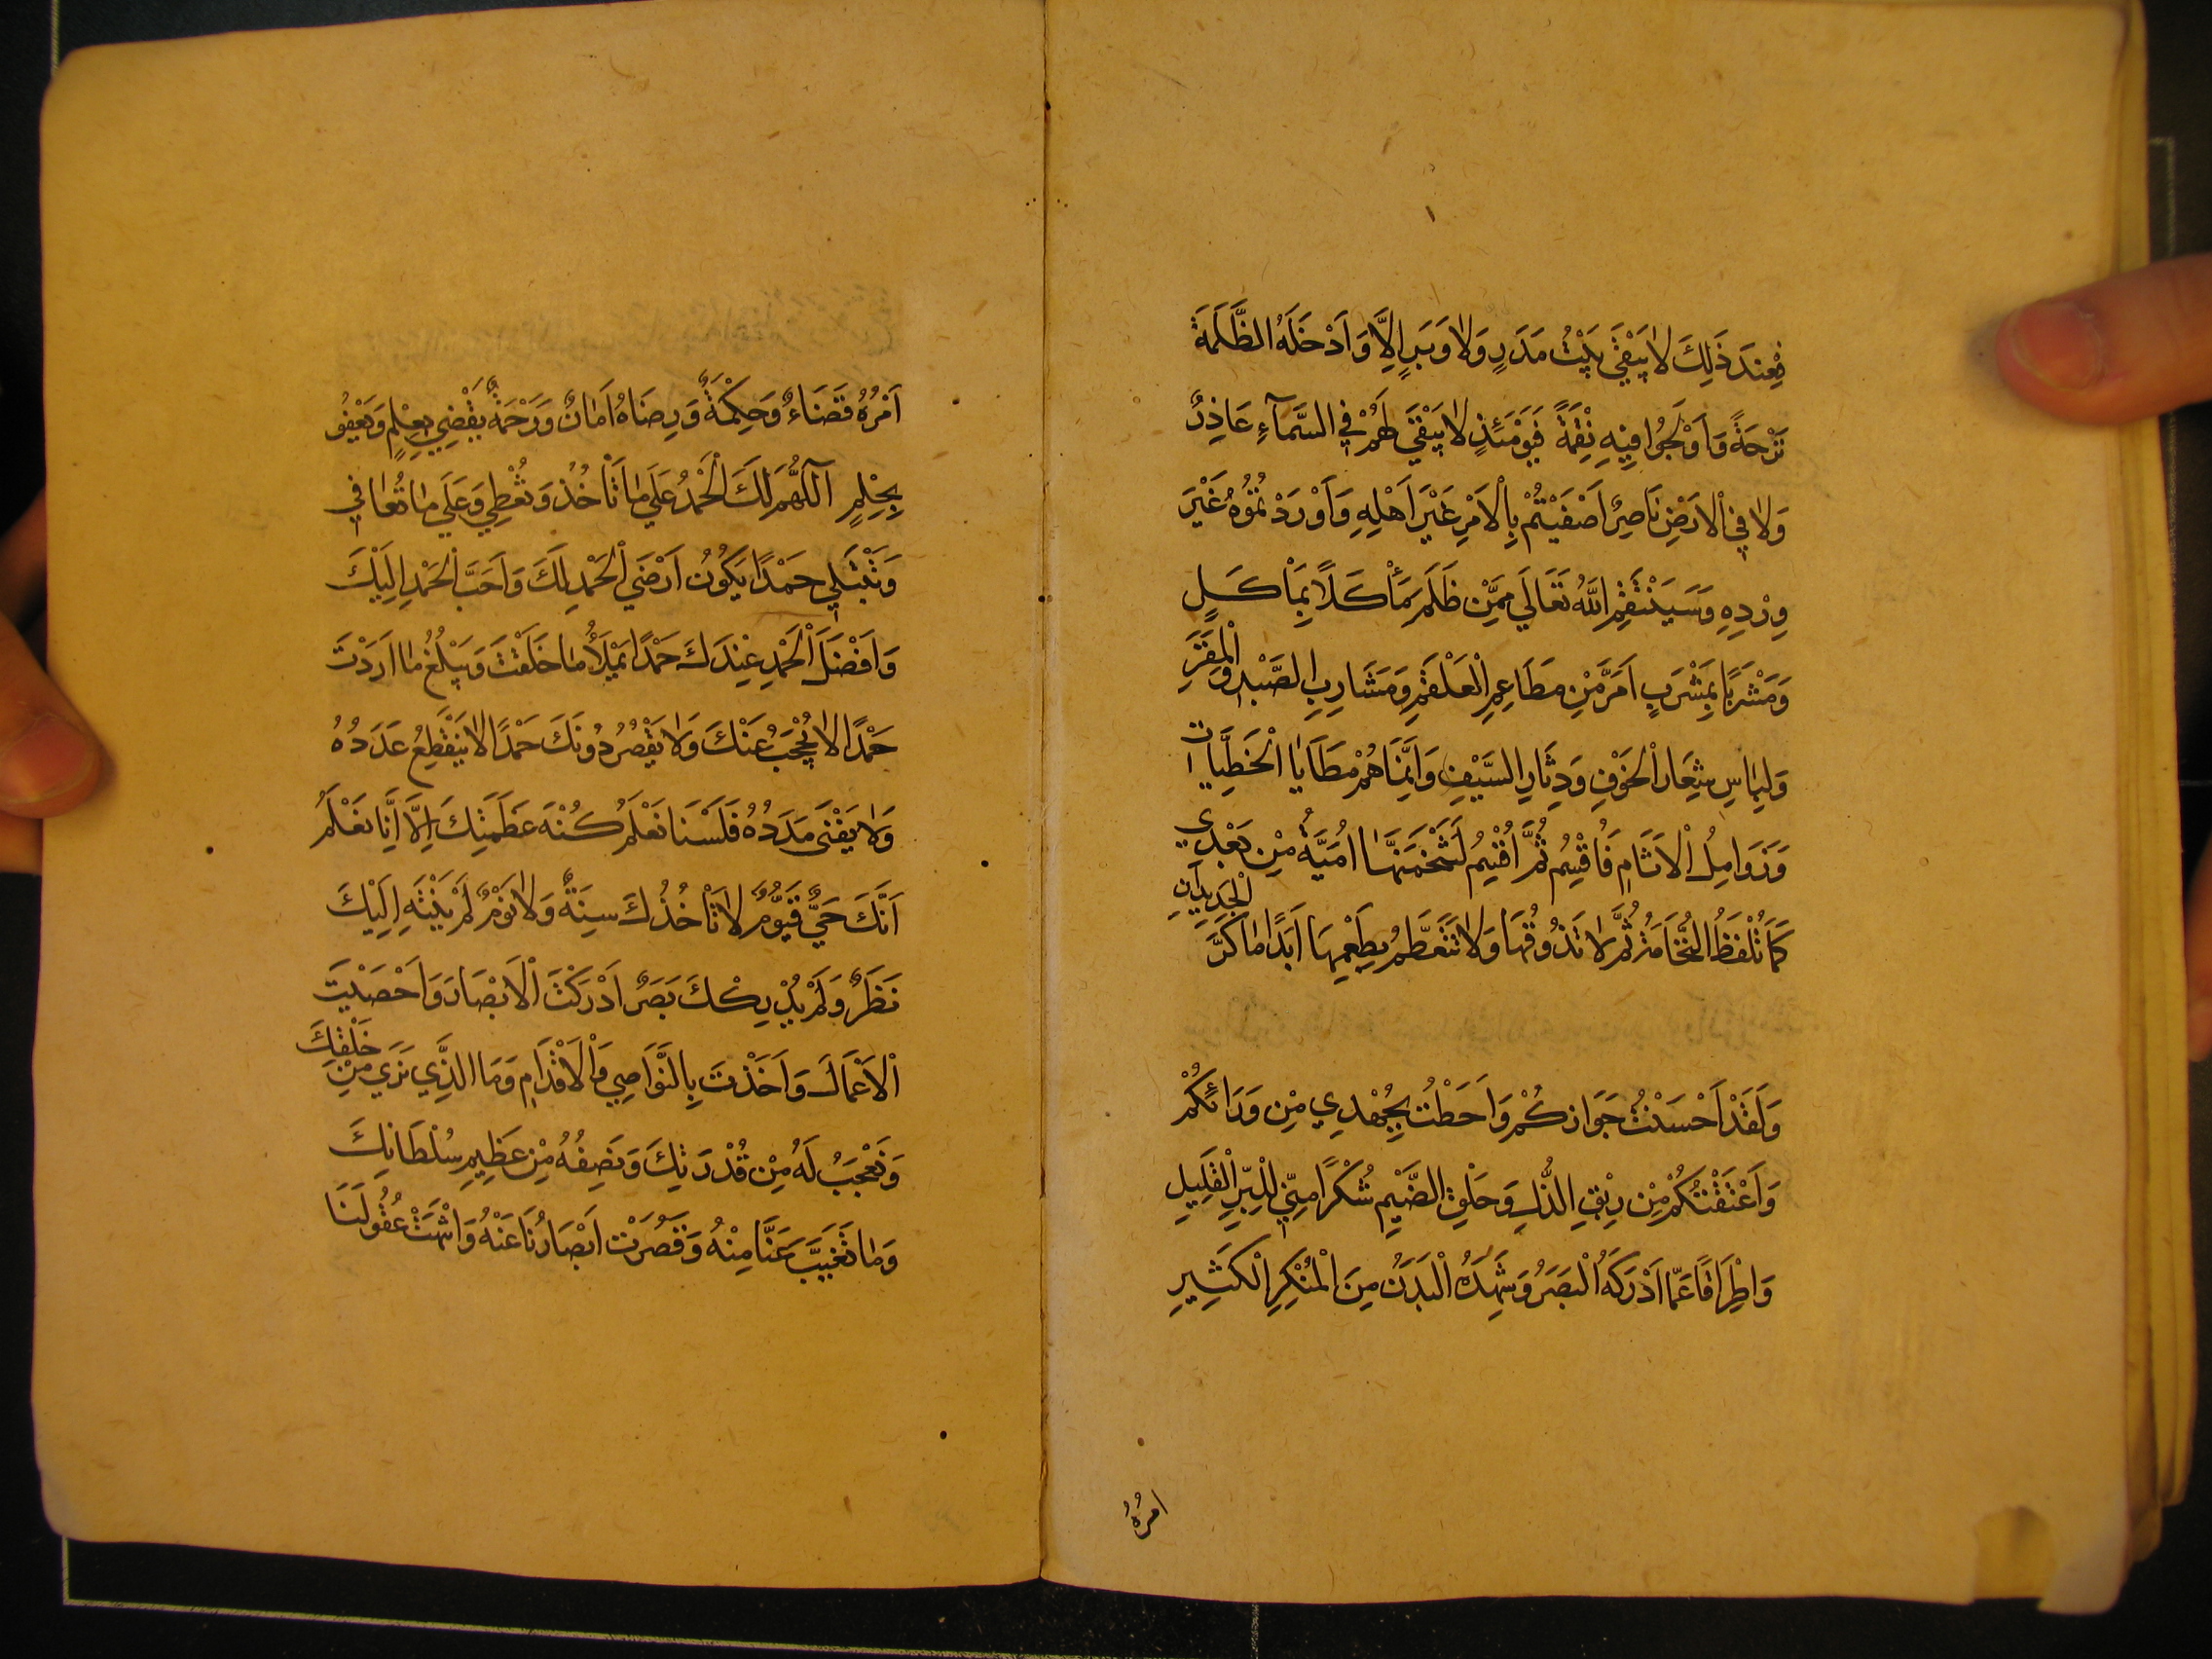 فَعِنْدَ ذَلِكَ لَا يَبْقَى بَيْتُ مَدَرٍ وَلَا وَبَرٍ اِلَّا وَاَدْخَلَهُ الظَّلَمَةُ
تَرْحَةً وَاَوْلَجُوا فِيهِ نِقْمَةً فَيَوْمَئِذٍ لَا يَبْقَى لَهُمْ فِي السَّمَآءِ عَاذِرٌ
وَلَا فِي الْاَرْضِ نَاصِرٌ اَصْفَيْتُمْ بِالْاَمْرِ غَيْرَ اَهْلِهِ وَاَوْرَدْتُمُوهُ غَيْرَ
وِرْدِهِ وَسَيَنْتَقِمُ اللَّهُ تَعَالَى مِمَّنْ ظَلَمَ مَأْكَلًا بِمَأْكَلٍ
وَمَشْرَبًا بِمَشْرَبٍ اَمَرَّ مِنْ مَطَاعِمِ الْعَلْقَمِ وَمَشَارِبِ الصَّبِرِ وَالْمَقِرِ
وَلِبَاسِ شِعَارِ الْخَوْفِ وَدِثَارِ السَّيْفِ وَاِنَّمَا هُمْ مَطَايَا الْخَطِيَّاتِ
وَزَوَامِلُ الْاَثَامِ فَاُقْسِمُ ثُمَّ اُقْسِمُ لَتَنْخَمَنَّهَا اُمَيَّةُ مِنْ بَعْدِي
كَمَا تُلْفَظُ النُّخَامَةُ ثُمَّ لَا تَذُوقُهَا وَلَا تَتَطَعَّمُ بِطَعْمِهَا اَبَدًا مَا كَرَّ الْجَدِيدَانِ
وَلَقَدْ اَحْسَنْتُ جِوَارَكُمْ وَاَحَطْتُ بِجُهْدِي مِنْ وَرَائِكُمْ
وَاَعْتَقْتُكُمْ مِنْ رِبَقِ الذُّلِّ وَحَلَقِ الضَّيْمِ شُكْرًا مِنِّي لِلْبِرِّ الْقَلِيلِ
وَاِطْرَاقًا عَمَّا اَدْرَكَهُ الْبَصَرُ وَشَهِدَهُ الْبَدَنُ مِنَ الْمُنْكَرِ الْكَثِيرِ
امرُهُ
اَمْرُهُ قَضَاءٌ وَحِكْمَةٌ وَرِضَاهُ اَمَانٌ وَرَحْمَةٌ يَقْضِي بِعِلْمٍ وَيَعْفُو
بِحِلْمٍ اَللَّهُمَّ لَكَ الْحَمْدُ عَلَى مَا تَأْخُذُ وَتُعْطِي وَعَلَى مَا تُعَافِي
وَتَبْتَلِي حَمْدًا يَكُونُ اَرْضَى الْحَمْدِ لَكَ وَاَحَبَّ الْحَمْدِ اِلَيْكَ
وَاَفْضَلَ الْحَمْدِ عِنْدَكَ حَمْدًا يَمْلَأُ مَا خَلَقْتَ وَيَبْلُغُ مَا اَرَدْتَ
حَمْدًا لَا يُحْجَبُ عَنْكَ وَلَا يَقْصُرُ دُونَكَ حَمْدًا لَا يَنْقَطِعُ عَدَدُهُ
وَلَا يَفْنَى مَدَدُهُ فَلَسْنَا نَعْلَمُ كُنْهَ عَظَمَتِكَ اِلَّا اَنَّا نَعْلَمُ
اَنَّكَ حَيٌّ قَيُّومٌ لَا تَأْخُذُكَ سِنَةٌ وَلَا نَوْمٌ لَمْ يَنْتَهِ اِلَيْكَ
نَظَرٌ وَلَمْ يُدْرِكْكَ بَصَرٌ اَدْرَكْتَ الْاَبْصَارَ وَاَحْصَيْتَ
الْاَعْمَالَ وَاَخَذْتَ بِالنَّوَاصِي وَالْاَقْدَامِ وَمَا الَّذِي نَرَى مِنْ خَلْقِكَ
وَنَعْجَبُ لَهُ مِنْ قُدْرَتِكَ وَنَصِفُهُ مِنْ عَظِيمِ سُلْطَانِكَ
وَمَا تَغَيَّبَ عَنَّا مِنْهُ وَقَصُرَتْ اَبْصَارُنَا عَنْهُ وَانْتَهَتْ عُقُولُنَا